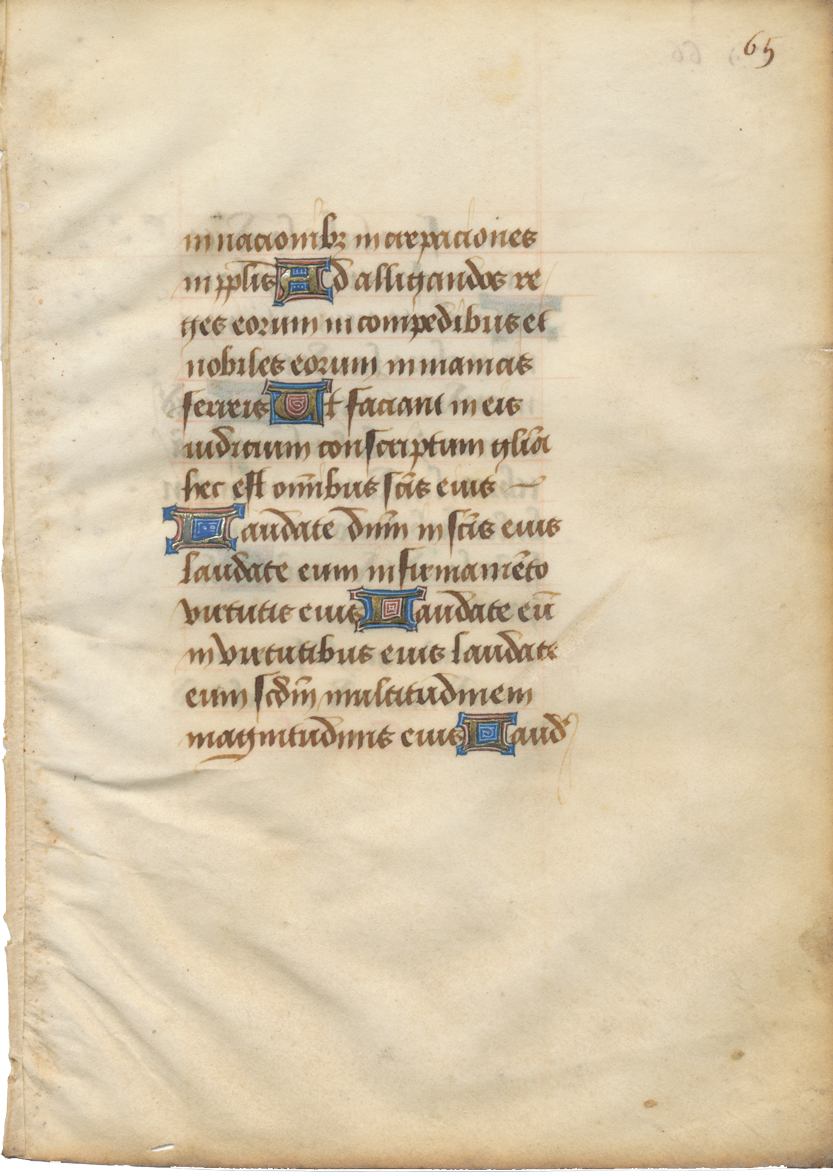 65
in nacionibȝ increpaciones
in pplis Ad alligandos re
ges eorum in compedibus et
nobiles eorum in manicis
ferreis Ut faciant in eis
iudicium conscriptum gl̄ia
hec est om̄ibus sc̄is eius
Laudate dn̄m in sc̄is eius
laudate eum in firmamēto
virtutis eius Laudate eū
in virtutibus eius laudate
eum scd̄m multitudinem
magnitudinis eius Laud